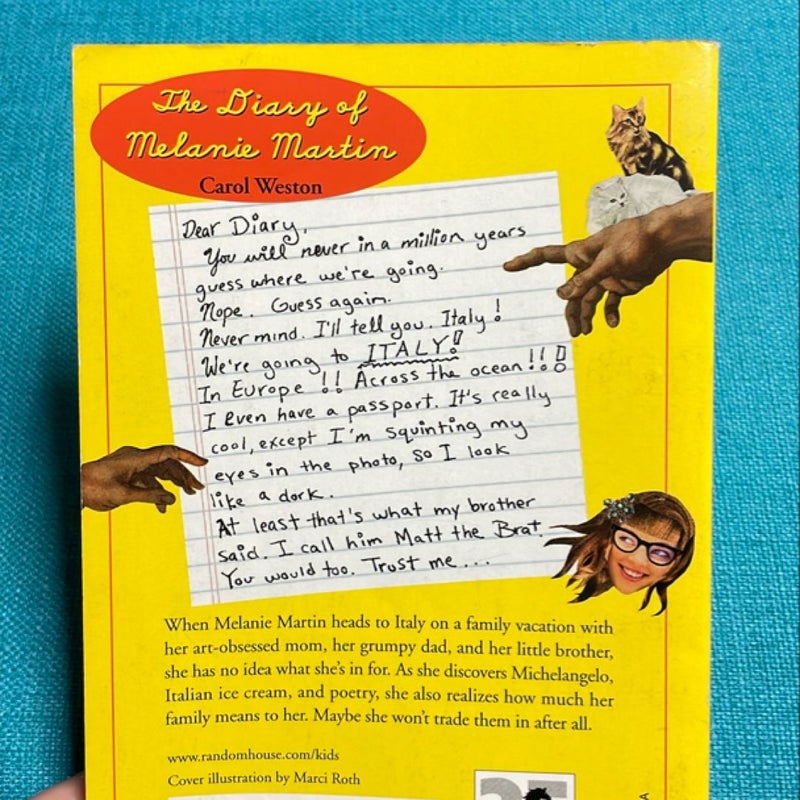 The Diary of
Melanie Martin
Carol Weston
Dear Diary,
You will never in a million years
guess where we're going.
Nope. Guess again.
Never mind. I'll tell you. Italy!
We're going to ITALY!
In Europe!! Across the ocean!!!
I Even have a passport. It's really
cool, except I'm squinting my
eyes in the photo, so I look
like a dork.
At least that's what my brother
said. I call him Matt the Brat.
You would too. Trust me...
When Melanie Martin heads to Italy on a family vacation with
her art-obsessed mom, her grumpy dad, and her little brother,
she has no idea what she's in for. As she discovers Michelangelo,
Italian ice cream, and poetry, she also realizes how much her
family means to her. Maybe she won't trade them in after all.
www.randomhouse.com/kids
Cover illustration by Marci Roth